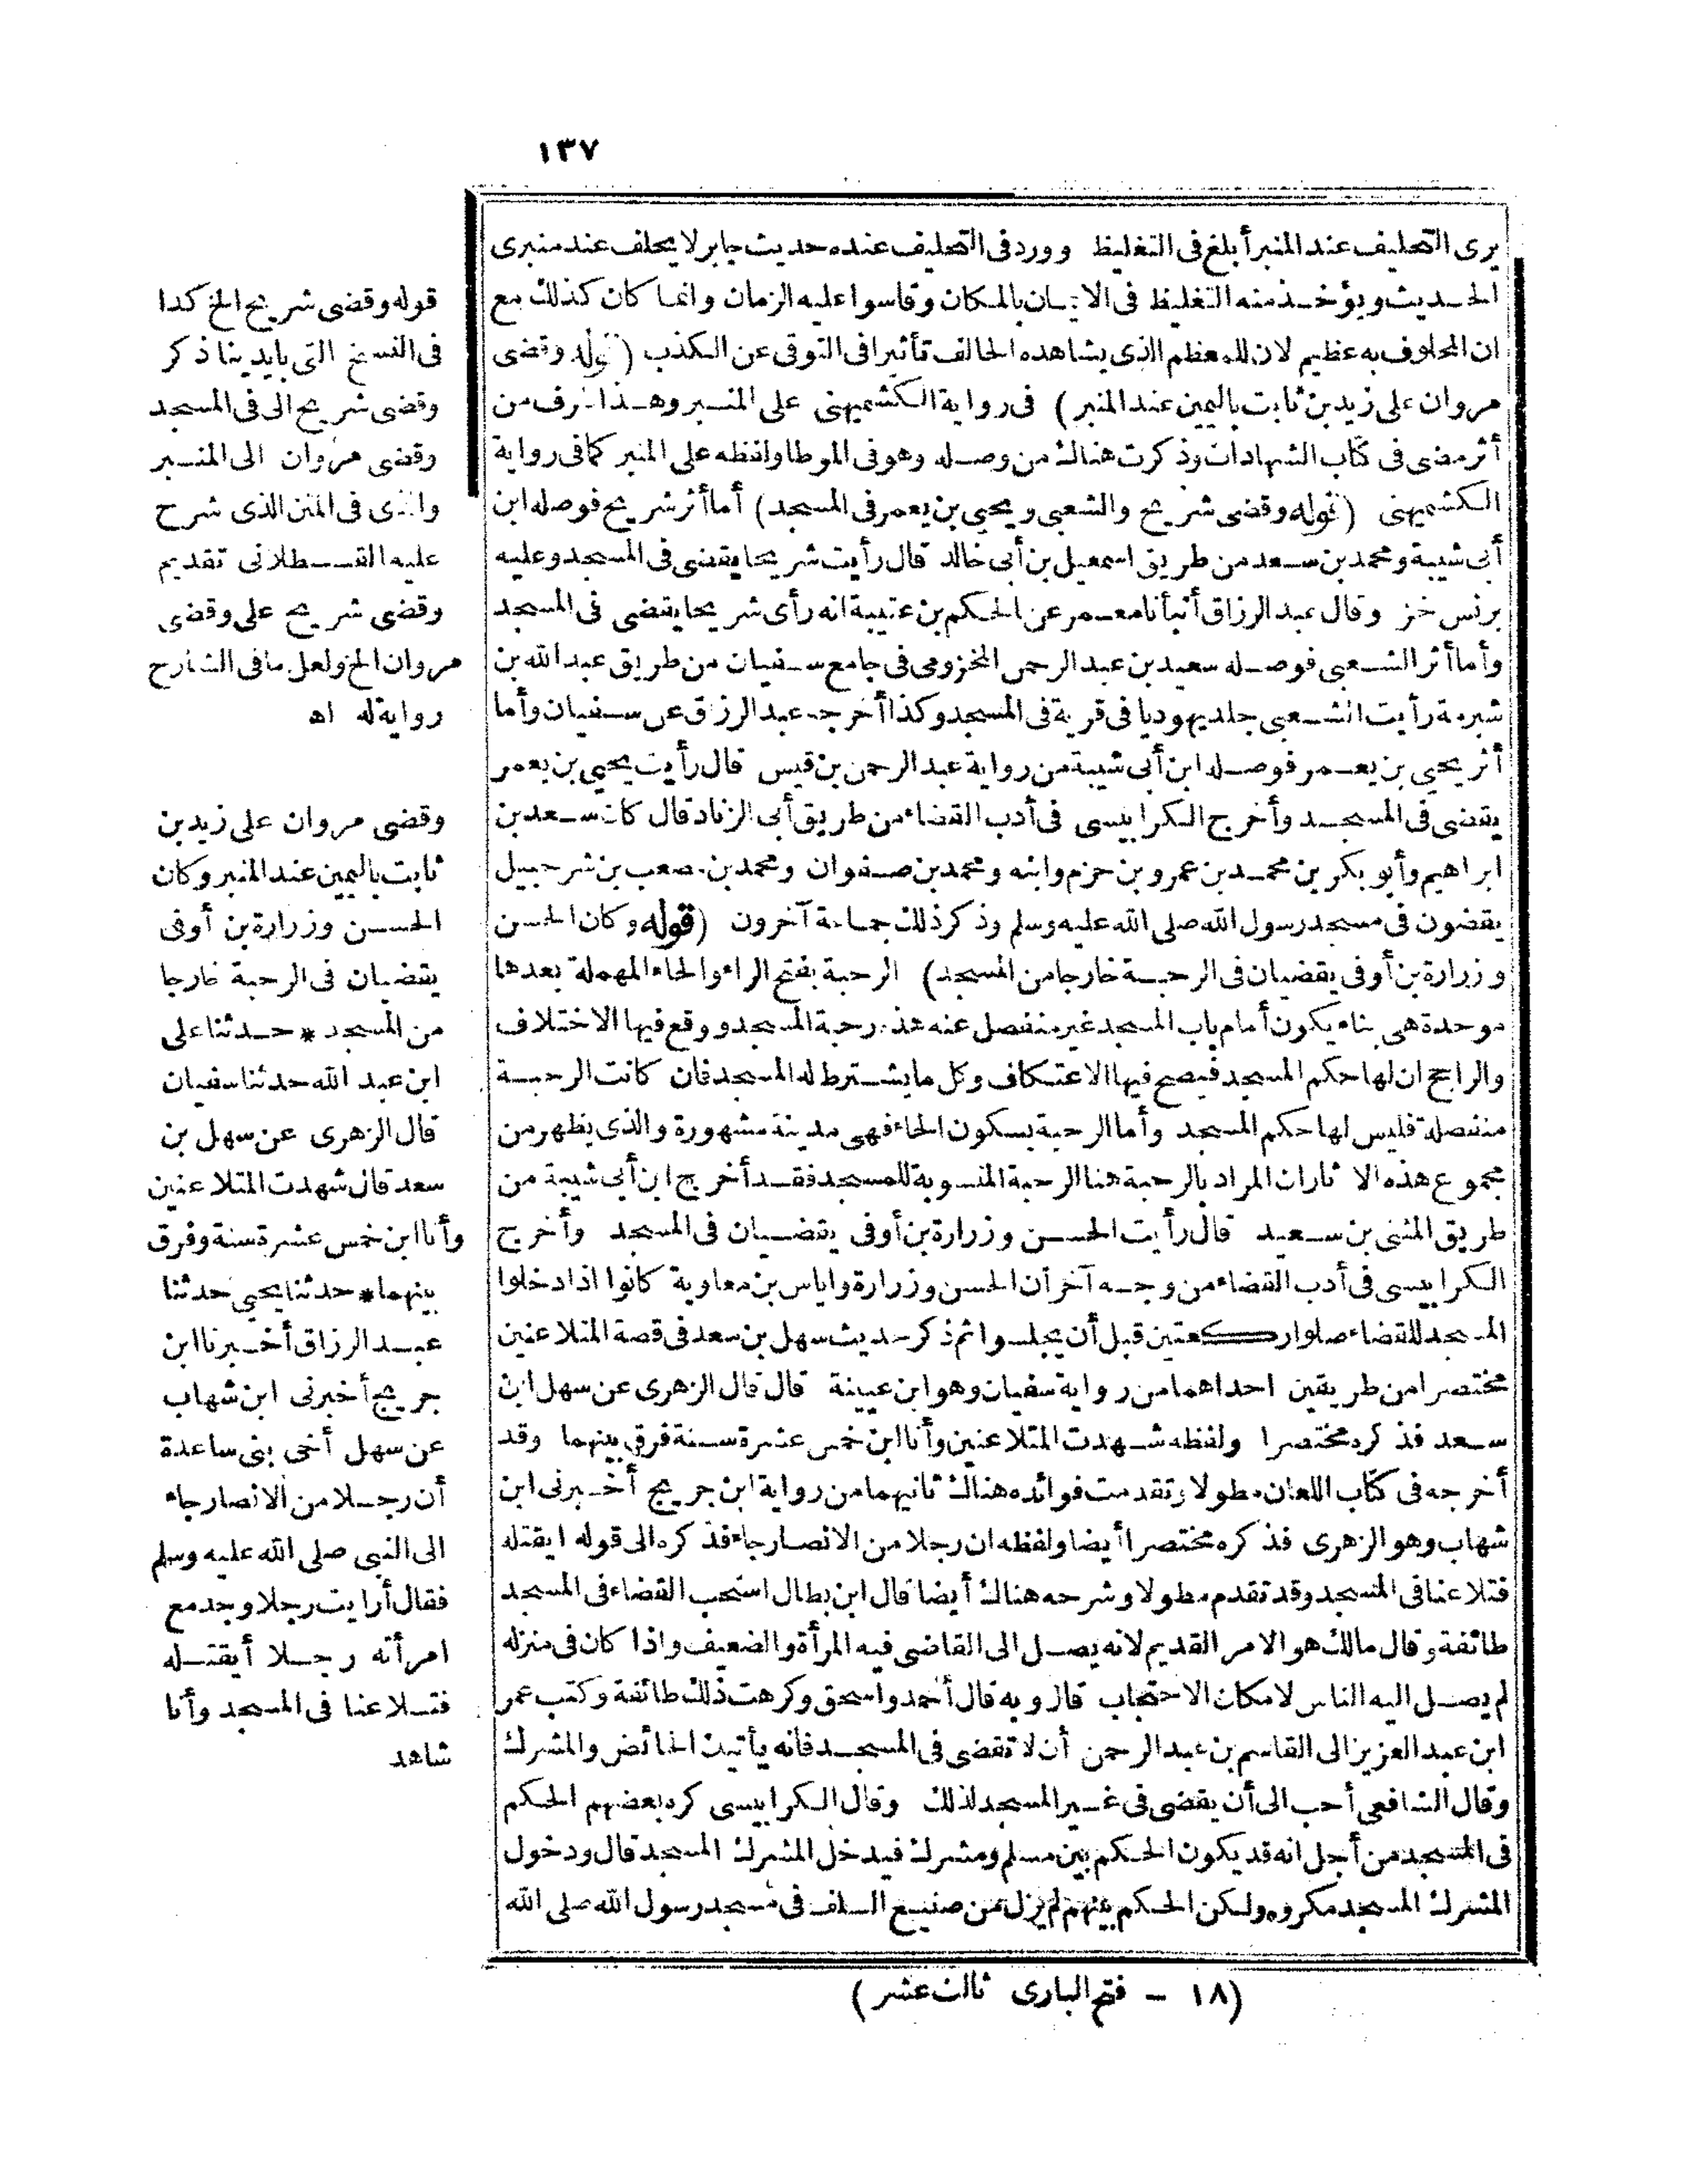 ١٣٧
يرى التحليف عند المنبر أبلغ فى التغليظ وورد فى التحليف عنده حديث جابر لا يحلف عند منبرى
الحديث ويؤخذ منه التغليظ فى الايمان بالمكان وقاسوا عليه الزمان وانما كان كذلك مع
ان المحلوف به عظيم لان للمعظم الذى يشاهده الحالف تأثيرا فى التوقى عن الكذب (قوله وقضى
مروان على زيد بن ثابت باليمين عند المنبر) فى رواية الكشميهنى على المنبر وهذا طرف من
أثر مضى فى كتاب الشهادات وذكرت هناك من وصله وهو فى الموطا ولفظه على المنبر كما فى رواية
الكشميهنى (قوله وقضى شريح والشعبى ويحيى بن يعمر فى المسجد) أما أثر شريح فوصله ابن
أبى شيبة ومحمد بن سعد من طريق اسمعيل بن أبى خالد قال رأيت شريحا يقضى فى المسجد وعليه
برنس خز وقال عبد الرزاق أنبأنا معمر عن الحكم بن عتيبة انه رأى شريحا يقضى فى المسجد
وأما أثر الشعبى فوصله سعيد بن عبد الرحمن المخزومى فى جامع سفيان من طريق عبد الله بن
شبرمة رأيت الشعبى جلد يهوديا فى قرية فى المسجد وكذا أخرجه عبد الرزاق عن سفيان وأما
أثر يحيى بن يعمر فوصله ابن أبى شيبة من رواية عبد الرحمن بن قيس قال رأيت يحيى بن يعمر
يقضى فى المسجد وأخرج الكرابيسى فى أدب القضاء من طريق أبى الزناد قال كان سعد بن
ابراهيم وأبو بكر بن محمد بن عمرو بن حزم وابنه ومحمد بن صفوان ومحمد بن مصعب بن شرحبيل
يقضون فى مسجد رسول الله صلى الله عليه وسلم وذكر ذلك جماعة آخرون (قوله وكان الحسن
وزرارة بن أوفى يقضيان فى الرحبة خارجا من المسجد) الرحبة بفتح الراء والحاء المهملة بعدها
موحدة هى بناء يكون أمام باب المسجد غير منفصل عنه هذه رحبة المسجد ووقع فيها الاختلاف
والراجح ان لها حكم المسجد فيصح فيها الاعتكاف وكل ما يشترط له المسجد فان كانت الرحبة
منفصلة فليس لها حكم المسجد وأما الرحبة بسكون الحاء فهى مدينة مشهورة والذى يظهر من
مجموع هذه الا ثار ان المراد بالرحبة هنا الرحبة المنسوبة للمسجد فقد أخرج ابن أبى شيبة من
طريق المثنى بن سعيد قال رأيت الحسن وزرارة بن أوفى يقضيان فى المسجد وأخرج
الكرابيسى فى أدب القضاء من وجه آخر أن الحسن وزرارة واياس بن معاوية كانوا اذا دخلوا
المسجد للقضاء صلوا ركعتين قبل أن يجلسوا ثم ذكر حديث سهل بن سعد فى قصة المتلاعنين
مختصرا من طريقين احداهما من رواية سفيان وهو ابن عيينة قال قال الزهرى عن سهل ابن
سعد فذكره مختصرا ولفظه شهدت المتلاعنين وأنا ابن خمس عشرة سنة فرق بينهما وقد
أخرجه فى كتاب اللعان مطولا وتقدمت فوائده هناك ثانيهما من رواية ابن جريج أخبرنى ابن
شهاب وهو الزهرى فذكره مختصرا أيضا ولفظه ان رجلا من الانصار جاء فذكره الى قوله ايقتله
فتلاعنا فى المسجد وقد تقدم مطولا وشرحه هناك أيضا قال ابن بطال استحب القضاء فى المسجد
طائفة وقال مالك هو الامر القديم لانه يصل الى القاضى فيه المرأة والضعيف واذا كان فى منزله
لم يصل اليه الناس لامكان الاحتجاب قال وبه قال أحمد واسحق وكرهت ذلك طائفة وكتب عمر
ابن عبد العزيز الى القاسم بن عبد الرحمن أن لا تقضى فى المسجد فانه يأتيك الحائض والمشرك
وقال الشافعى أحب الى أن يقضى فى غير المسجد لذلك وقال الكرابيسى كره بعضهم الحكم
فى المسجد من أجل انه قد يكون الحكم بين مسلم ومشرك فيدخل المشرك المسجد قال ودخول
المشرك المسجد مكروه ولكن الحكم بينهم لم يزل من صنيع السلف فى مسجد رسول الله صلى الله
قوله وقضى شريح الخ كدا
فى النسخ التى بايدينا ذكر
وقضى شريح الى فى المسجد
وقضى مروان الى المنبر
والذى فى المتن الذى شرح
عليه القسطلانى تقديم
وقضى شريح على وقضى
مروان الخ ولعل ما فى الشارح
رواية له اه
وقضى مروان على زيد بن
ثابت باليمين عند المنبر وكان
الحسن وزرارة بن أوفى
يقضيان فى الرحبة خارجا
من المسجد * حدثنا على
ابن عبد الله حدثنا سفيان
قال الزهرى عن سهل بن
سعد قال شهدت المتلاعنين
وأنا ابن خمس عشرة سنة وفرق
بينهما * حدثنا يحيى حدثنا
عبد الرزاق أخبرنا ابن
جريج أخبرنى ابن شهاب
عن سهل أخى بنى ساعدة
أن رجلا من الانصار جاء
الى النبى صلى الله عليه وسلم
فقال أرايت رجلا وجد مع
امرأته رجلا أيقتله
فتلاعنا فى المسجد وأنا
شاهد
(١٨ - فتح البارى ثالث عشر)